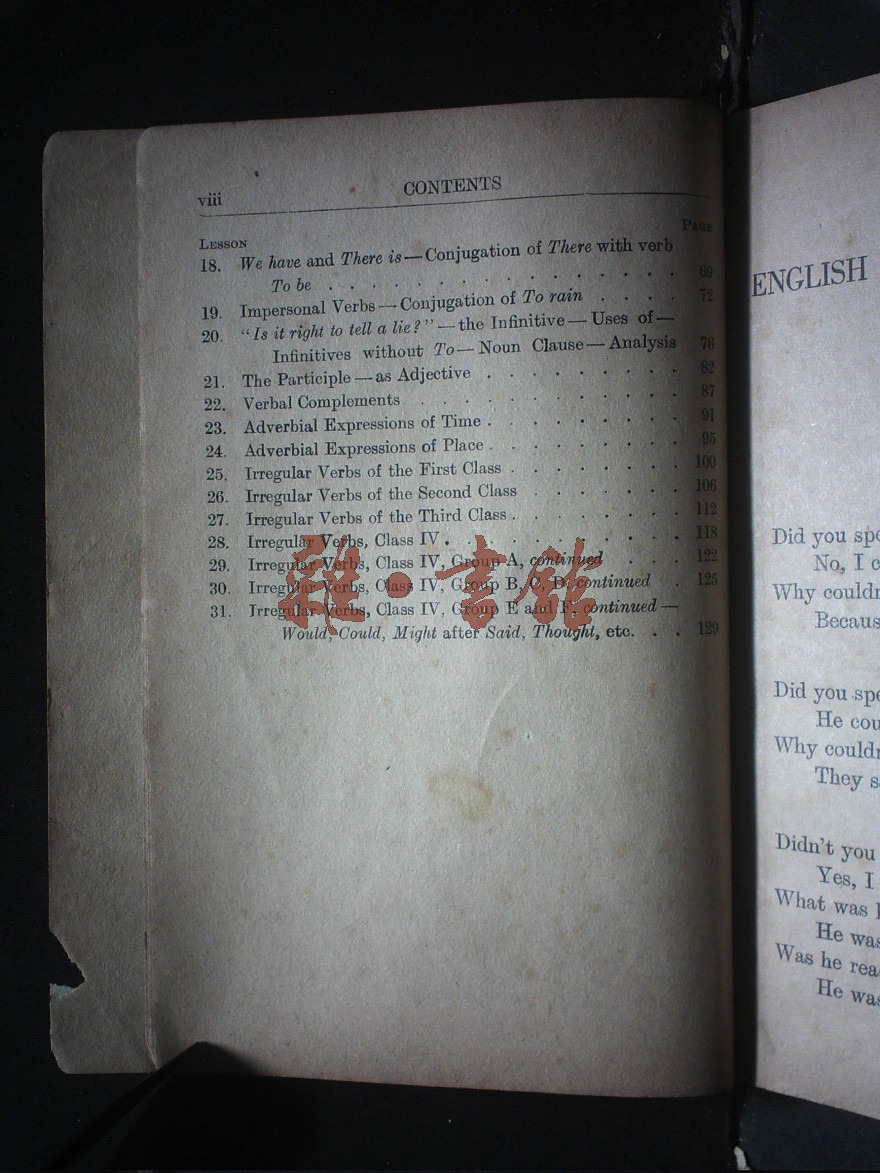 viii
CONTENTS
LESSON
PAGE
18. We have and There is — Conjugation of There with verb
To be . . . . . . . . . . . . . . . 69
19. Impersonal Verbs — Conjugation of To rain . . . . 72
20. "Is it right to tell a lie?" — the Infinitive — Uses of —
Infinitives without To — Noun Clause — Analysis 76
21. The Participle — as Adjective . . . . . . . . . 82
22. Verbal Complements . . . . . . . . . . . 87
23. Adverbial Expressions of Time . . . . . . . . 91
24. Adverbial Expressions of Place . . . . . . . . 95
25. Irregular Verbs of the First Class . . . . . . . 100
26. Irregular Verbs of the Second Class . . . . . . 106
27. Irregular Verbs of the Third Class . . . . . . . 112
28. Irregular Verbs, Class IV . . . . . . . . . . 118
29. Irregular Verbs, Class IV, Group A, continued . . . 122
30. Irregular Verbs, Class IV, Group B, C, D, continued . 125
31. Irregular Verbs, Class IV, Group E and F, continued —
Would, Could, Might after Said, Thought, etc. . . 129
雜·書館
ENGLISH
Did you spe
No, I c
Why couldn
Becaus
Did you spe
He cou
Why couldn
They s
Didn't you
Yes, I
What was
He was
Was he rea
He was